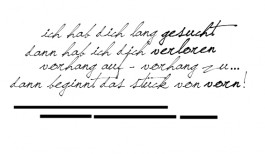 ich hab dich lang gesucht
dann hab ich dich verloren
vorhang auf - vorhang zu...
dann beginnt das stück von vorn!